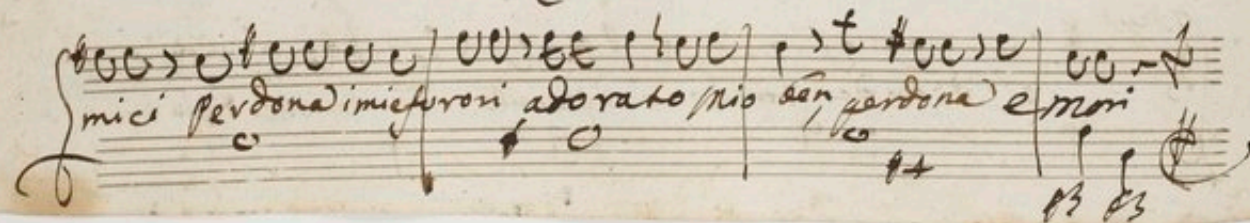 mici perdona i miei furori adorato mio ben perdona e mori